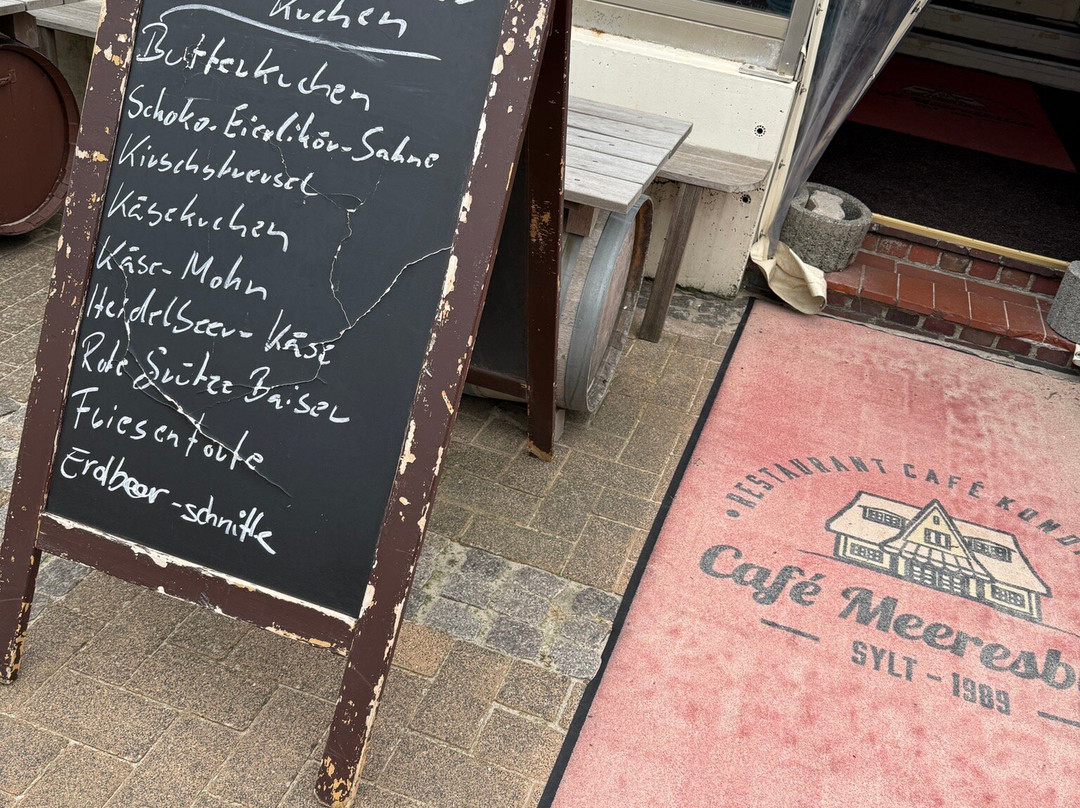 Kuchen
Butterkuchen
Schoko-Eierlikör-Sahne
Kirschstreusel
Käsekuchen
Käse-Mohn
Heidelbeer-Käse
Rote Grütze Baiser
Fliesentorte
Erdbeer-schnitte
• RESTAURANT CAFÉ KOND
Café Meeresb
SYLT - 1989